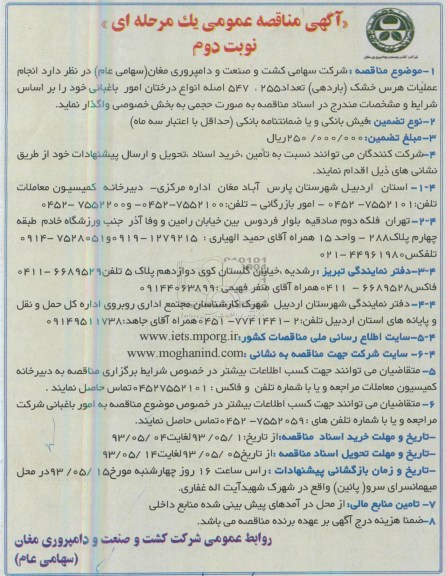 «آگهی مناقصه عمومی یك مرحله ای »
نوبت دوم
۱-موضوع مناقصه : شرکت سهامی کشت و صنعت و دامپروری مغان(سهامی عام) در نظر دارد انجام
عملیات هرس خشک (باردهی) تعداد۲۵۵، ۵۴۷ اصله انواع درختان امور باغبانی خود را بر اساس
شرایط و مشخصات مندرج در اسناد مناقصه به صورت حجمی به بخش خصوصی واگذار نماید.
۲-نوع تضمین :فیش بانکی و یا ضمانتنامه بانکی (حداقل با اعتبار سه ماه)
۳-مبلغ تضمین:۲۵۰/۰۰۰/۰۰۰ریال
۴-شرکت کنندگان می توانند نسبت به تأمین ،خرید اسناد ،تحویل و ارسال پیشنهادات خود از طریق
نشانی های ذیل اقدام نمایند.
۴-۱- استان اردبیل شهرستان پارس آباد مغان اداره مرکزی- دبیرخانه کمیسیون معاملات
تلفن:۷۵۵۲۱۰۱-۰۴۵۲ - امور بازرگانی – تلفن:۷۵۵۲۱۰۰-۰۴۵۲ و۷۵۵۲۲۰۰-۰۴۵۲
۴-۲- تهران فلکه دوم صادقیه بلوار فردوس بین خیابان رامین و وفا آذر جنب ورزشگاه خادم طبقه
چهارم پلاک۲۸۸ - واحد ۱۵ همراه آقای حمید الهیاری : ۱۲۷۹۲۱۵-۰۹۱۹و۷۵۲۸۰۵۱-۰۹۱۴
تلفکس۴۴۹۶۱۹۸۰-۰۲۱
۴-۳-دفتر نمایندگی تبریز :رشدیه ،خیابان گلستان کوی دوازدهم پلاک ۵ تلفن۶۶۸۹۵۲۹-۰۴۱۱
فاکس۶۶۸۹۵۲۸ - ۰۴۱۱ همراه آقای منفر فهیمی :۰۹۱۴۴۰۶۳۸۹۹
۴-۴-دفتر نمایندگی شهرستان اردبیل شهرک کارشناسان مجتمع اداری روبروی اداره کل حمل و نقل
و پایانه های استان اردبیل تلفن:۲-۷۷۴۱۴۴۱-۰۴۵۱ همراه آقای جاهد:۰۹۱۴۹۵۱۱۷۳۸
۴-۵-سایت اطلاع رسانی ملی مناقصات کشور:www.iets.mporg.ir
۴-۶- سایت شرکت جهت مناقصه به نشانی :www.moghanind.com
۵- متقاضیان می توانند جهت کسب اطلاعات بیشتر در خصوص شرایط برگزاری مناقصه به دبیرخانه
کمیسیون معاملات مراجعه و یا با شماره تلفن و فاکس : ۰۴۵۲۷۵۵۲۱۰۱تماس حاصل نمایند .
۶- متقاضیان می توانند جهت کسب اطلاعات بیشتر در خصوص موضوع مناقصه به امور باغبانی شرکت
مراجعه و یا با شماره تلفن های : ۷۵۵۲۰۵۹-۰۴۵۲ تماس حاصل نمایند.
-تاریخ و مهلت خرید اسناد مناقصه:از تاریخ: ۱ /۰۵ /۹۳ لغایت۰۴ /۰۵ /۹۳
-تاریخ و مهلت تحویل اسناد مناقصه :از تاریخ۰۵ /۰۵ /۹۳ لغایت۱۴ /۰۵ /۹۳
-تاریخ و زمان بازگشائی پیشنهادات : راس ساعت ۱۶ روز چهارشنبه مورخ۱۵ /۰۵ /۹۳در محل
میهمانسرای سرو( پائین) واقع در شهرک شهیدآیت اله غفاری.
۷- تامین منابع مالی: از محل در آمدهای پیش بینی شده منابع داخلی
۸-ضمنا هزینه درج آگهی بر عهده برنده مناقصه می باشد.
روابط عمومی شرکت کشت و صنعت و دامپروری مغان
(سهامی عام)